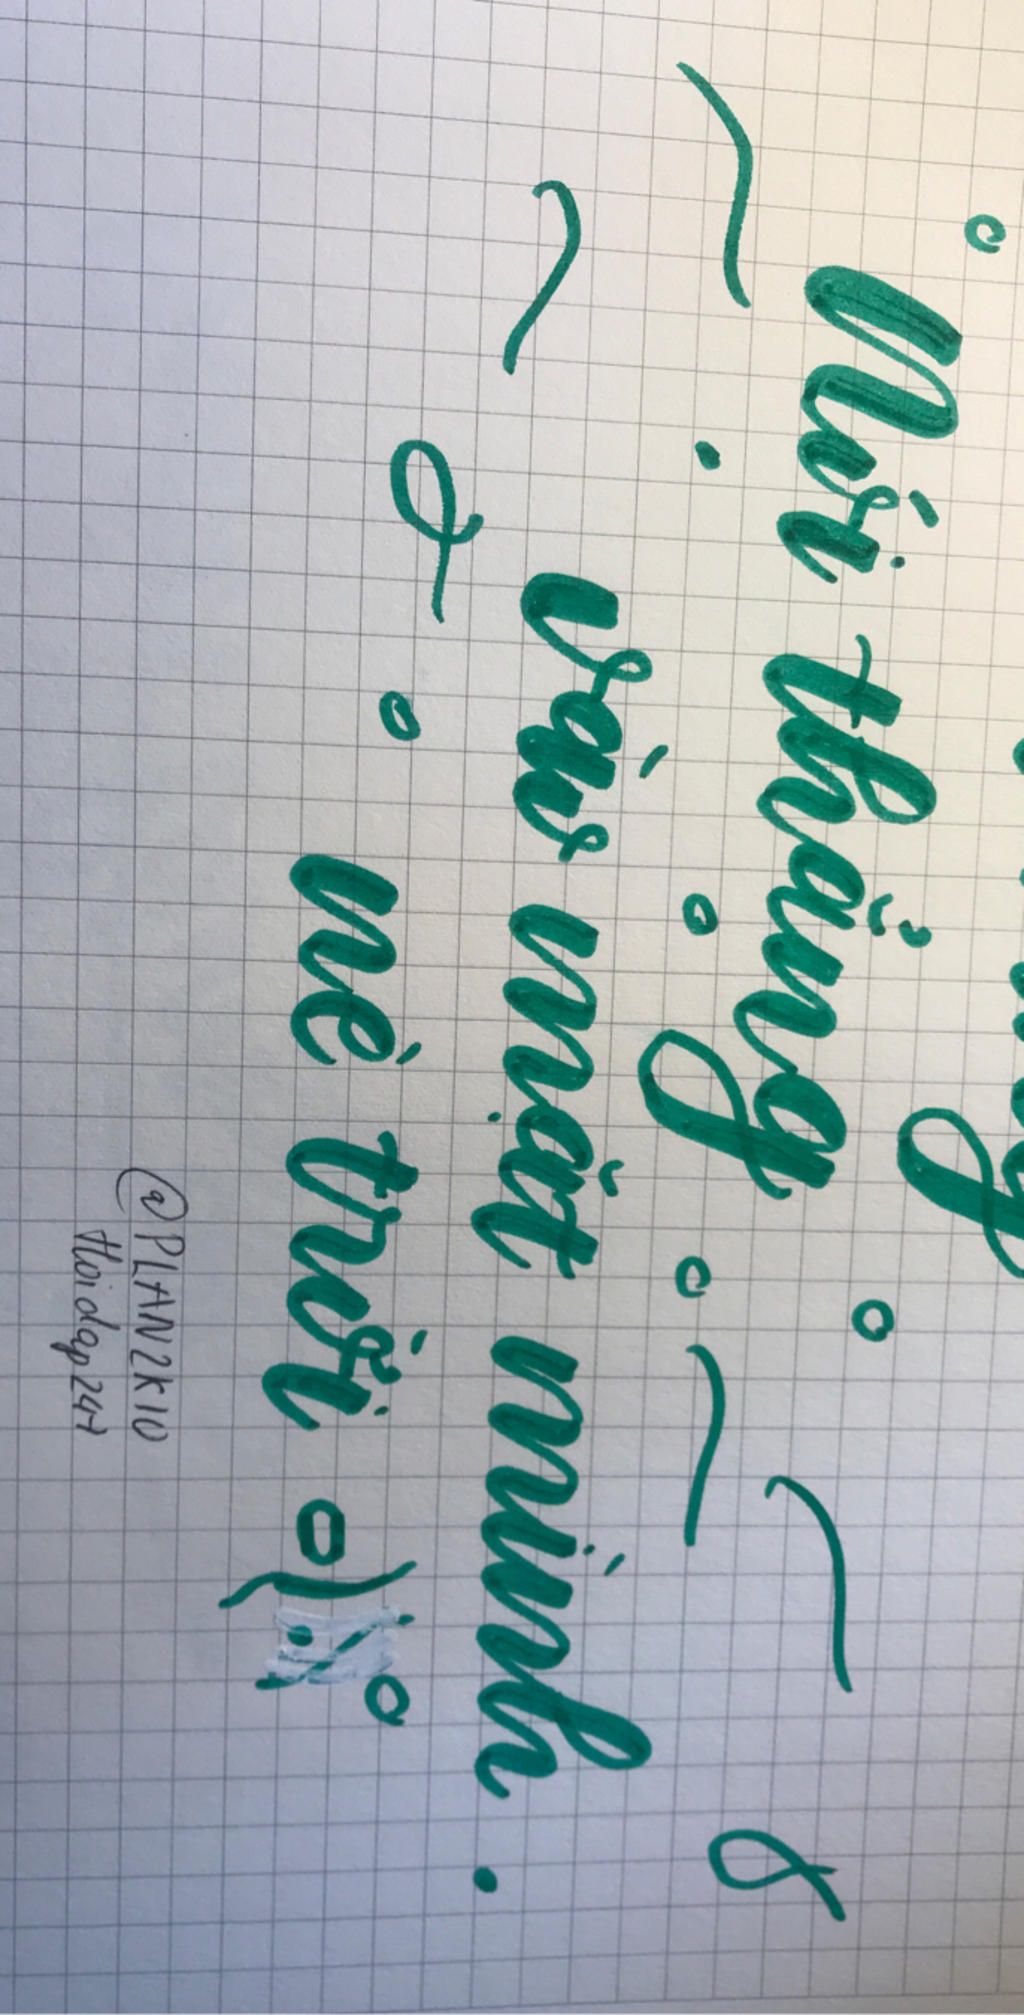 Nói thẳng
vào mặt mình.
né trời
@PLAN2K10
Hoidap247